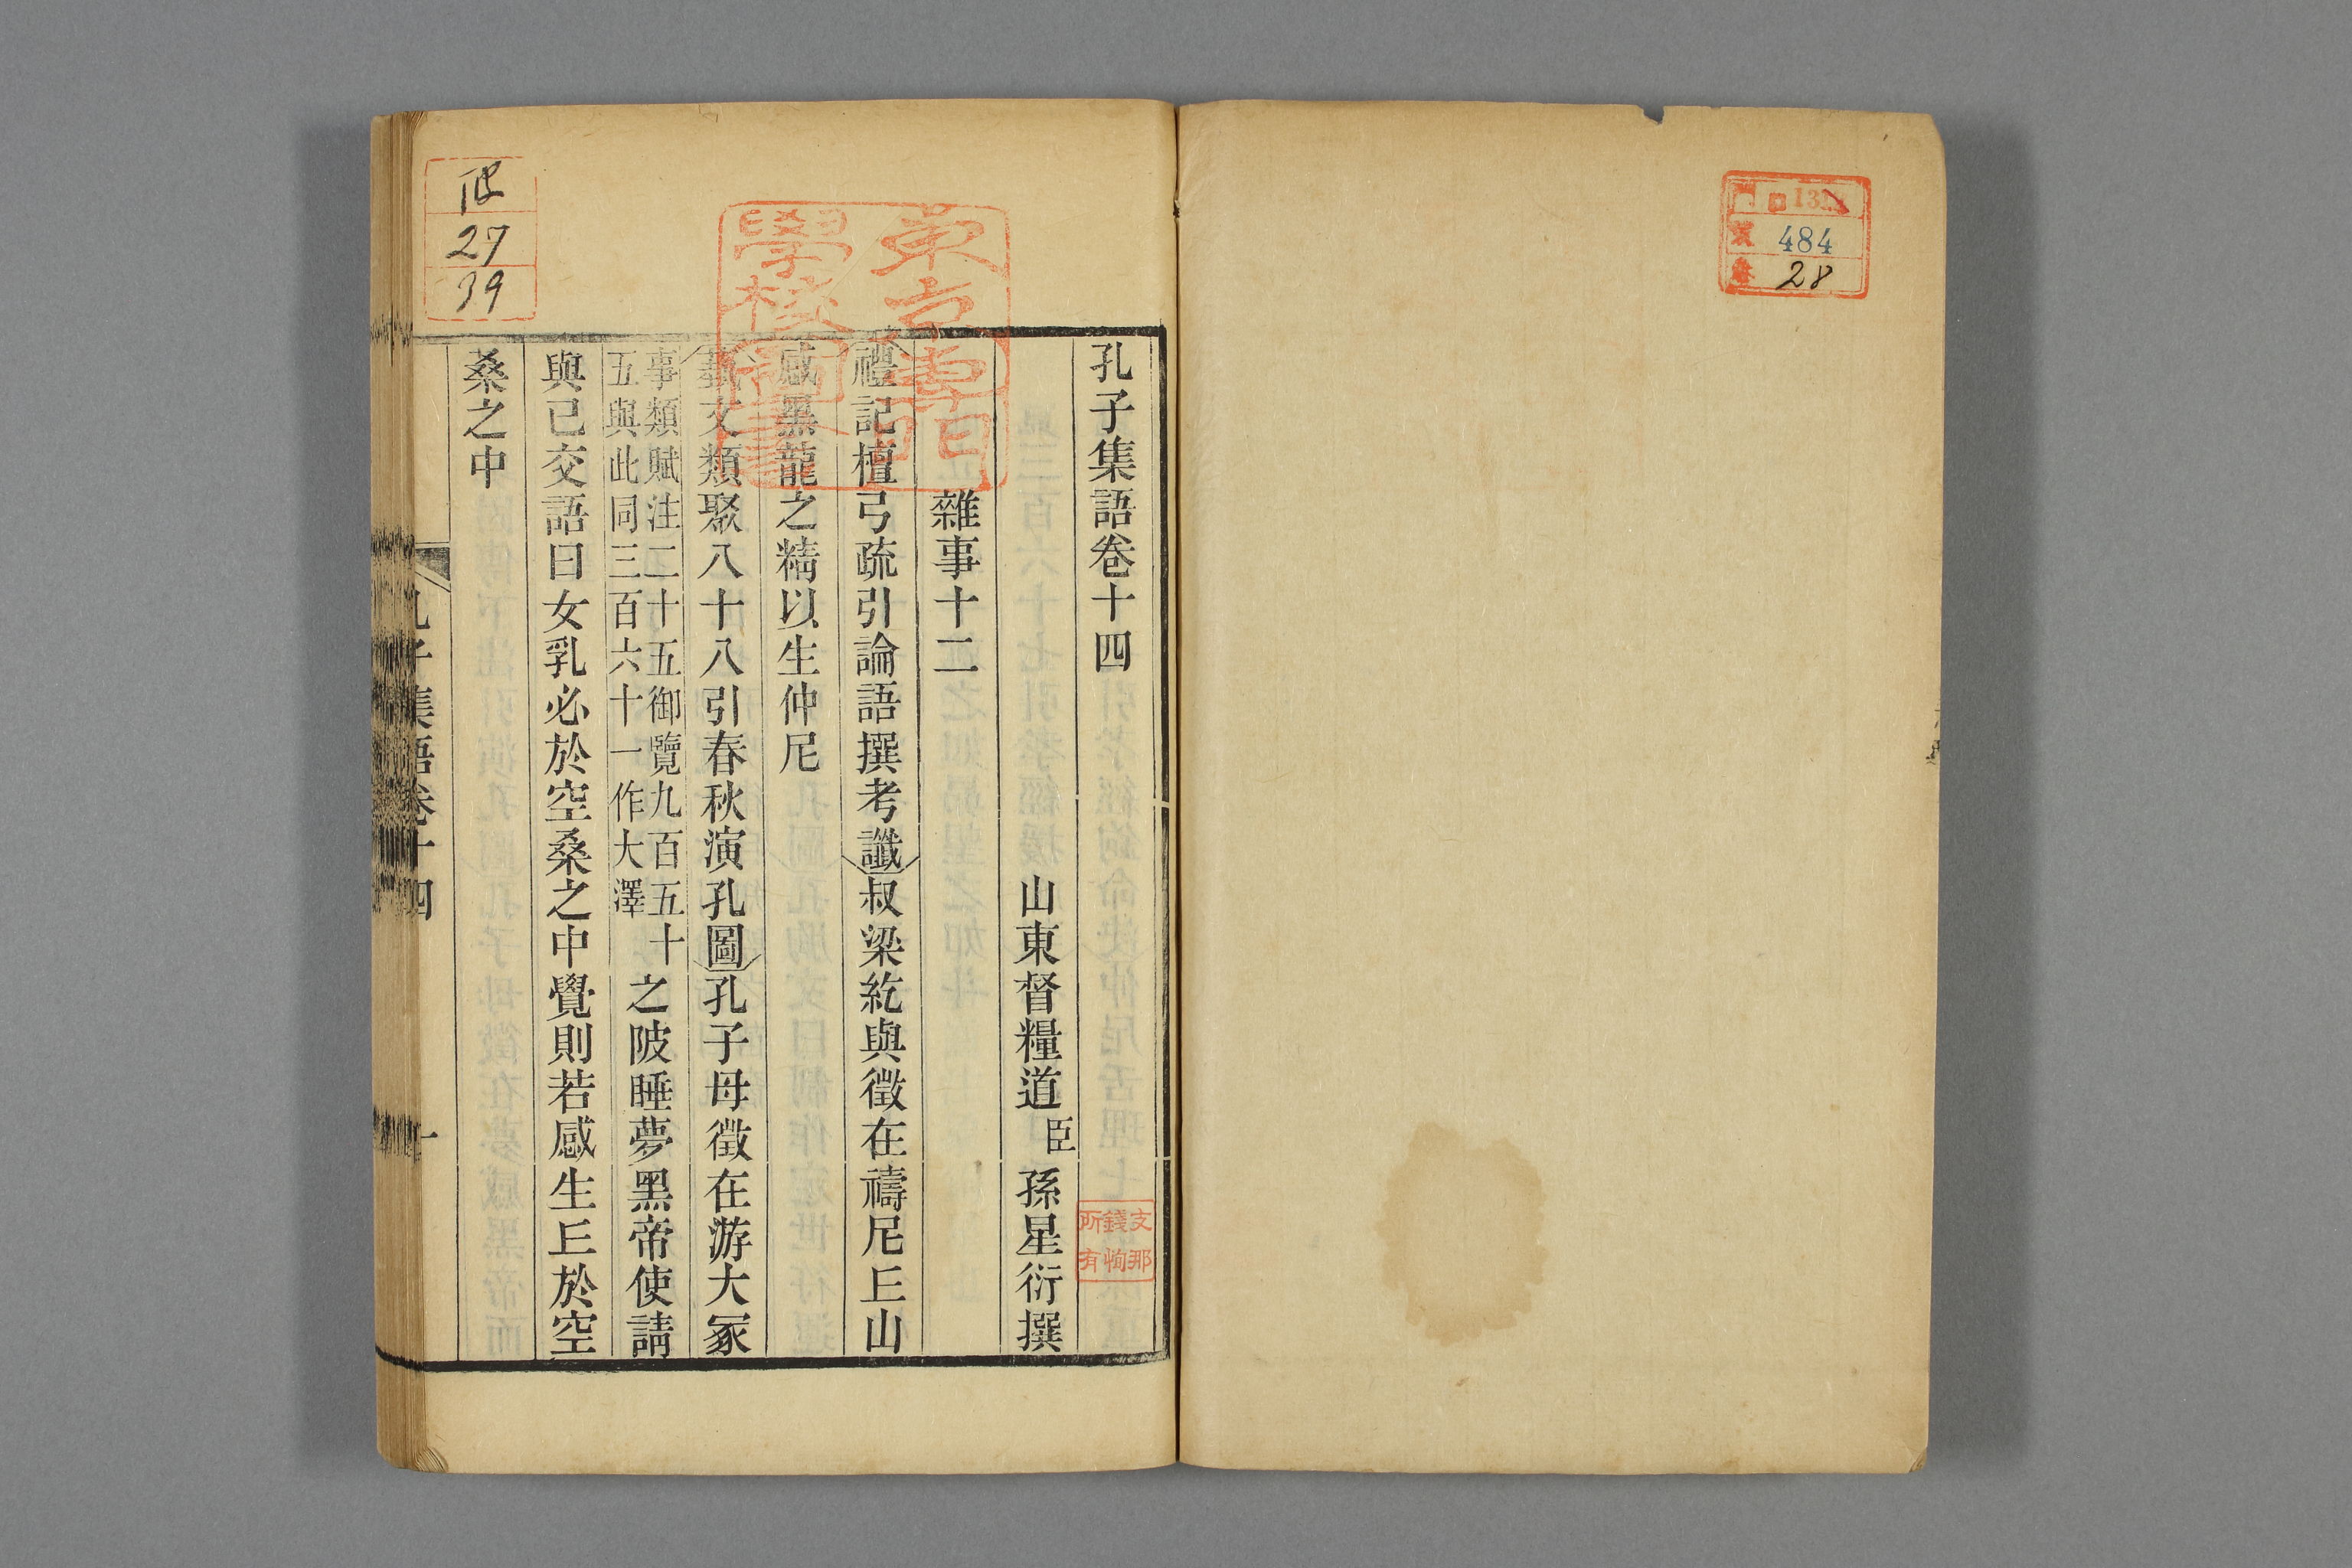 484
28
孔子集語卷十四
山東督糧道臣孫星衍撰
雜事十二
禮記檀弓疏引論語撰考讖叔梁紇與徵在禱尼𠀉山
感黑龍之精以生仲尼
藝文類聚八十八引春秋演孔圖孔子母徵在游大冢
事類賦注二十五御覽九百五十
五與此同三百六十一作大澤
之陂睡夢黑帝使請
與已交語曰女乳必於空桑之中覺則若感生𠀉於空
桑之中
孔子集語卷十四
一
東京專門
學校圖書
支那
錢恂
所有
27
39